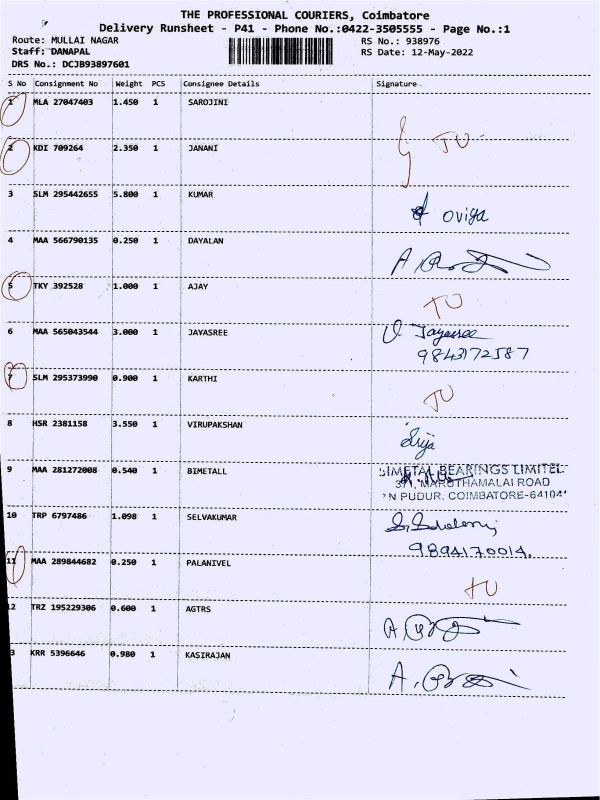 THE PROFESSIONAL COURIERS, Coimbatore
Delivery Runsheet - P41 - Phone No.:0422-3505555 - Page No.:1
Route: MULLAI NAGAR RS No.: 938976
Staff: DANAPAL RS Date: 12-May-2022
DRS No.: DCJB93897601
S No Consignment No Weight PCS Consignee Details Signature
1 MLA 27047403 1.450 1 SAROJINI
2 KDI 709264 2.350 1 JANANI TU
3 SLM 295442655 5.800 1 KUMAR oviya
4 MAA 566790135 0.250 1 DAYALAN
5 TKY 392528 1.000 1 AJAY TU
6 MAA 565043544 3.000 1 JAYASREE Jayasree
9843172587
7 SLM 295373990 0.900 1 KARTHI TU
8 HSR 2381158 3.550 1 VIRUPAKSHAN Srija
9 MAA 281272008 0.540 1 BIMETALL BIMETAL BEARINGS LIMITED
371, MARUTHAMALAI ROAD
N PUDUR, COIMBATORE-64104
10 TRP 6797486 1.098 1 SELVAKUMAR
9894170014.
11 MAA 289844682 0.250 1 PALANIVEL TU
12 TRZ 195229306 0.600 1 AGTRS
3 KRR 5396646 0.980 1 KASIRAJAN